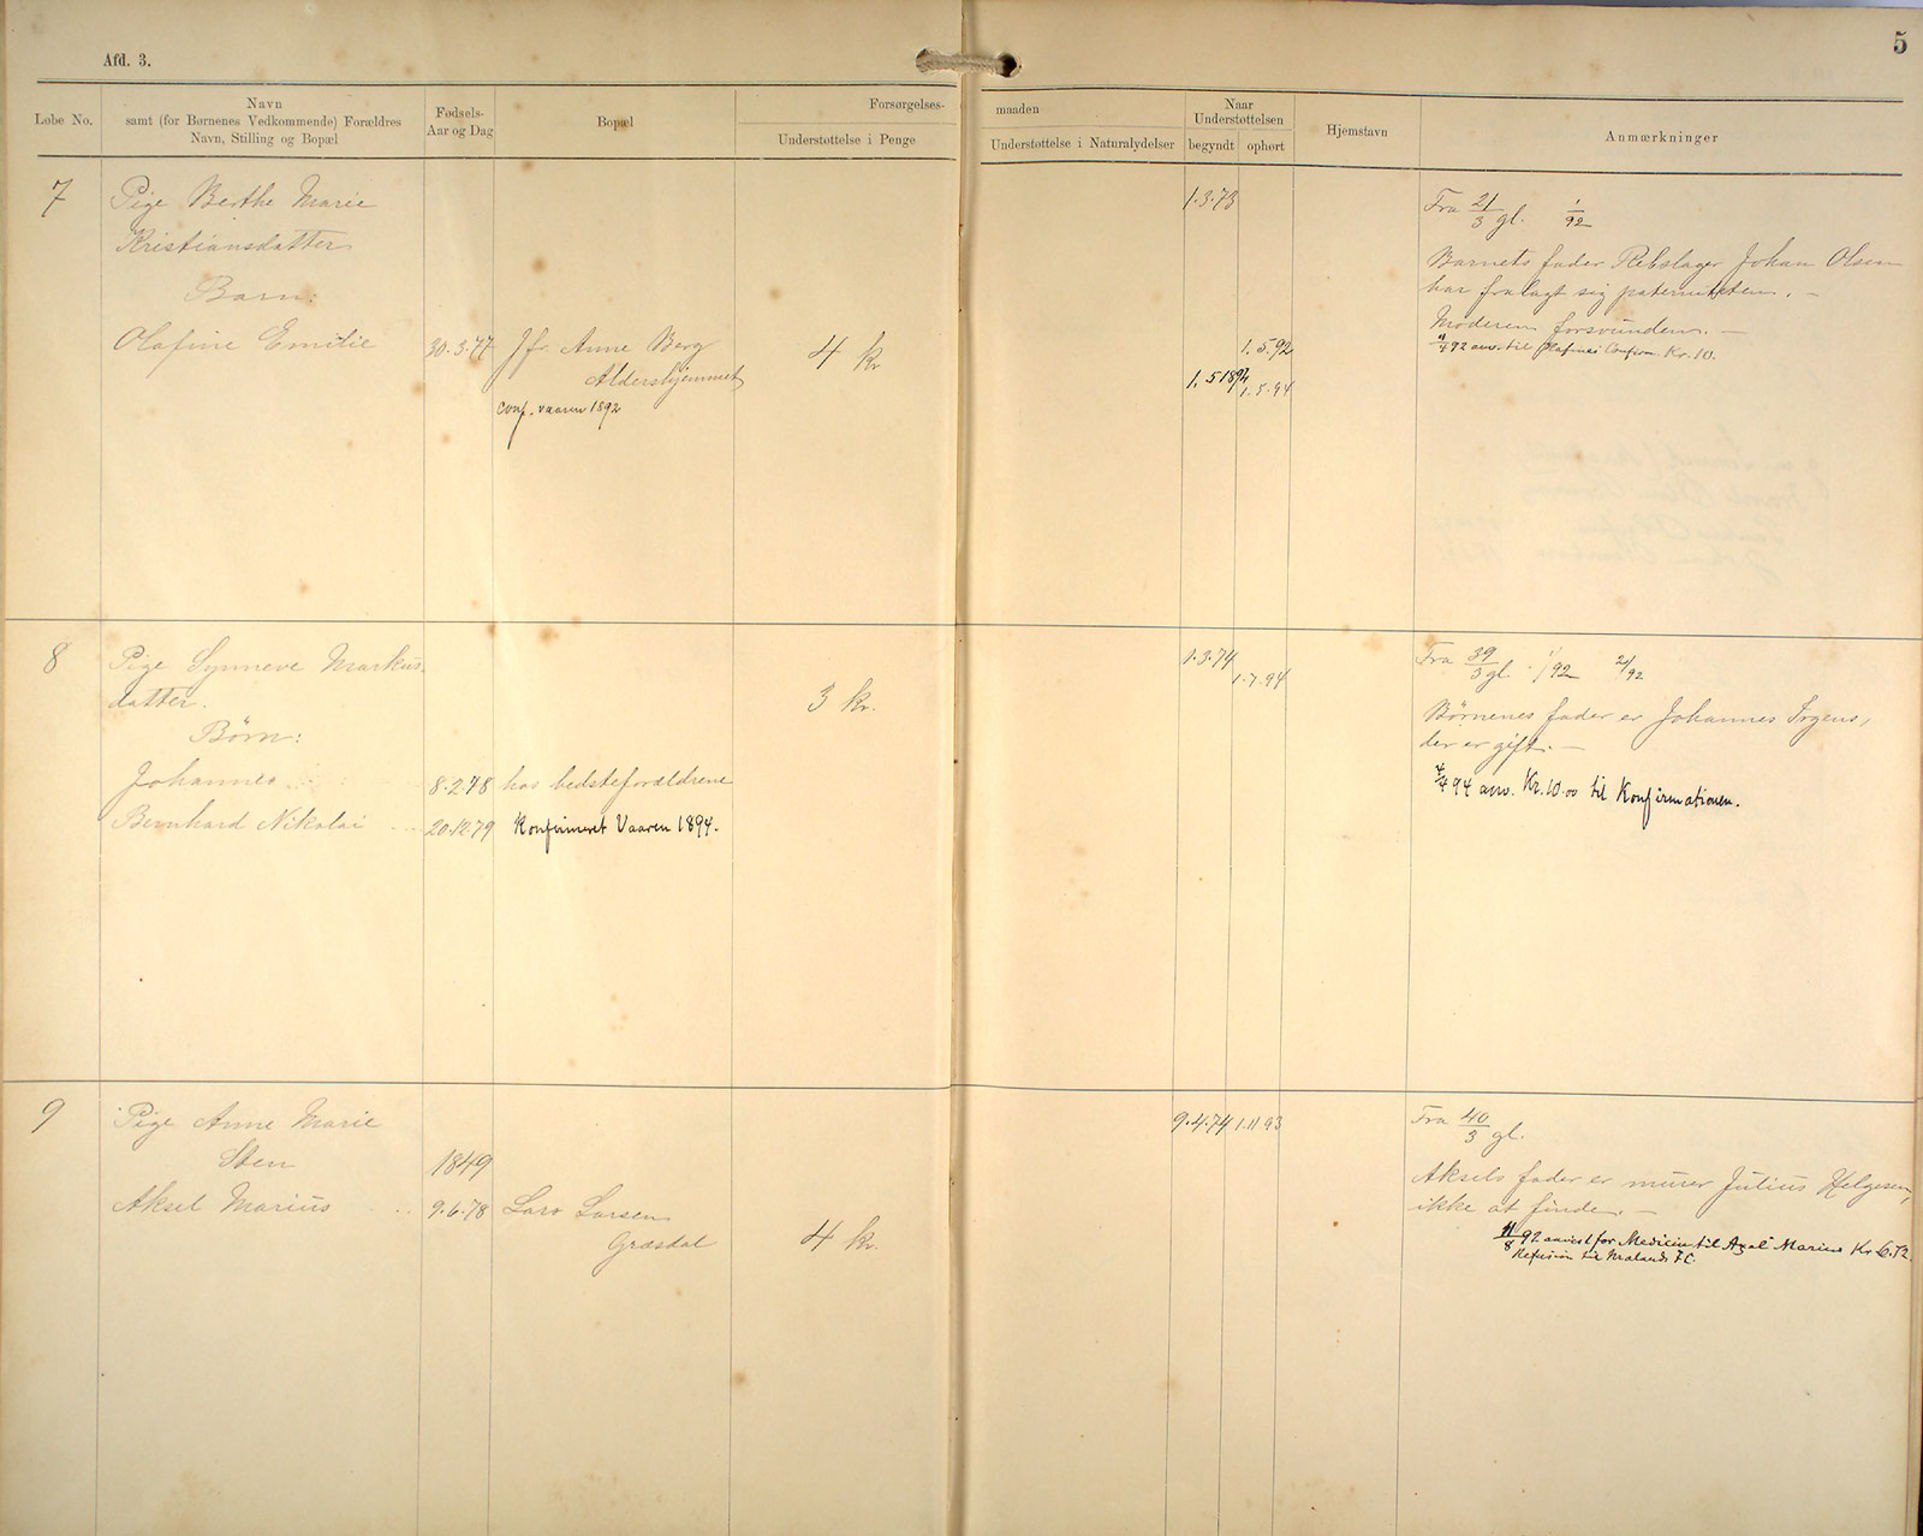 5
Afd. 3.
Løbe No.
Navn
samt (for Børnenes Vedkommende) Forældres
Navn, Stilling og Bopæl
Fødsels-
Aar og Dag
Bopæl
Forsørgelses-
Understøttelse i Penge
maaden
Understøttelse i Naturalydelser
Naar
Understøttelsen
begyndt
ophørt
Hjemstavn
Anmærkninger
7
Pige Berthe Marie
Kristiansdatter
Barn:
Olafine Emilie
30.3.77
Jfr. Anne Berg
Aldershjemmet
Conf. vaaren 1892
4 kr
1.3.73
1.5.92
1.5.94
Fra 21/3 gl. 1/92
Barnets fader Rebslager Johan Olsen
har fralagt sig paterniteten. –
Moderen forsvunden. –
92 anv. til Olafines Confirm. Kr. 10.
8
Pige Synneve Markus-
datter.
Børn:
Johannes
8.2.78
hos bedsteforældrene
Bernhard Nikolai
20.12.79
Konfirmeret Vaaren 1894.
3 kr.
1.3.74
1.7.94
Fra 39/3 gl. 1/92 2/92
Børnenes fader er Johannes Irgens,
der er gift. –
94 anv. Kr. 10.00 til Konfirmationen.
9
Pige Anne Marie
Sten
1849
Aksel Marius
9.6.78
Lars Larsen
Græsdal
4 kr.
9.4.74
1.11 93
Fra 40/3 gl.
Aksels fader er murer Julius Helgesen,
ikke at finde. –
11/8 92 anvist for Medicin til Axel Marius Kr 6.72.
Refusion til Malands F.C.